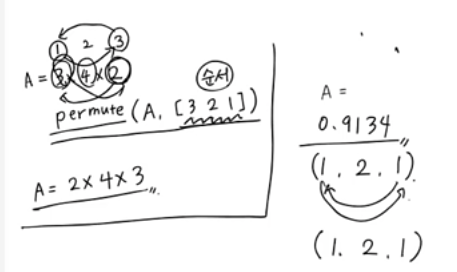 1 2 3
A = 3 x 4 x 2
순서
permute (A, [3 2 1])
A = 2 x 4 x 3
A =
0.9134
(1, 2, 1)
(1. 2, 1)